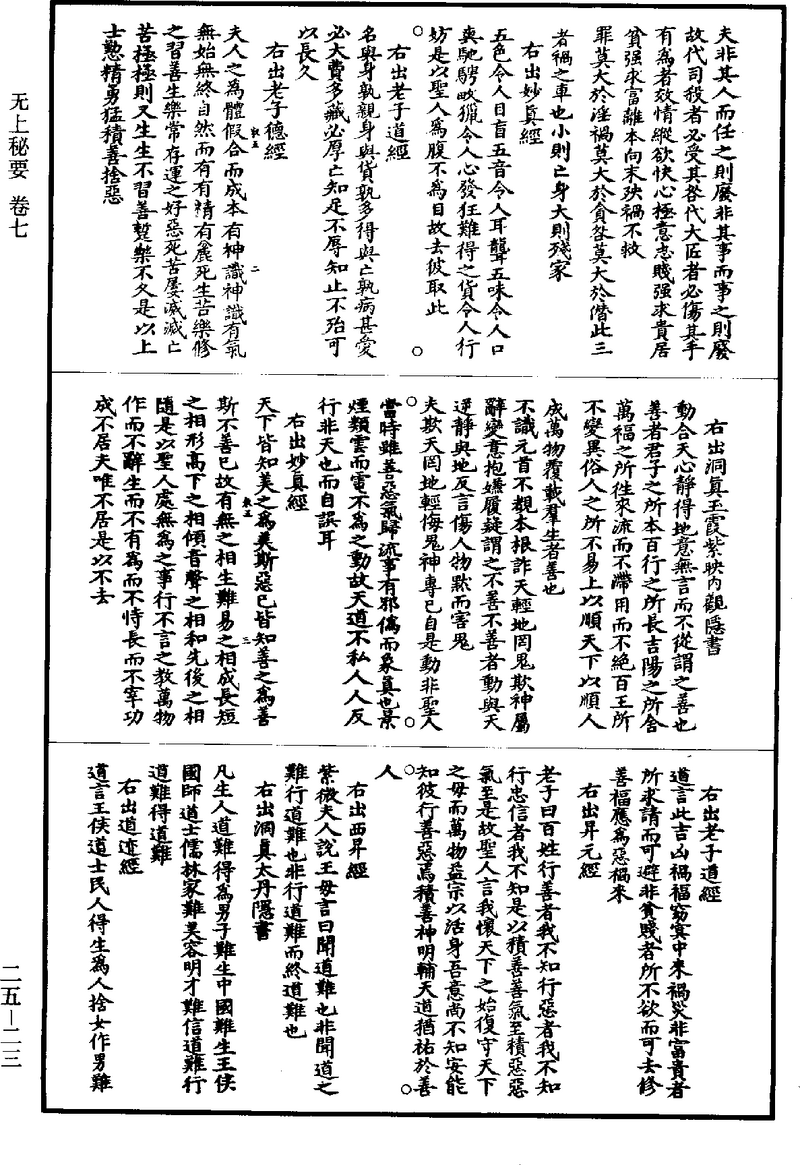 无上秘要 卷七
夫非其人而任之則廢非其事而事之則廢
故代司殺者必受其咎代大匠者必傷其手
有為者效情縱欲快心極意忠賤强求貴居
貧强求富離本向末殃禍不救
罪莫大於淫禍莫大於貪咎莫大於僭此三
者禍之車也小則亡身大則殘家
右出妙真經
五色令人目盲五音令人耳聾五味令人口
爽馳騁畋獵令人心發狂難得之貨令人行
妨是以聖人為腹不為目故去彼取此
右出老子道經
名與身孰親身與貨孰多得與亡孰病甚愛
必大費多藏必厚亡知足不辱知止不殆可
以長久
右出老子德經
夫人之為體假合而成本有神識神識有氣
無始無終自然而有有精有麄死生苦樂修
之習善生樂常存運之好惡死苦屡滅滅亡
苦極極則又生生不習善蹔樂不久是以上
士懃精勇猛積善捨惡
右出洞真玉霞紫映內觀隱書
動合天心靜得地意無言而不從謂之善也
善者君子之所本百行之所長吉陽之所舍
萬福之所往來流而不滯用而不絕百王所
不變異俗人之所不易上以順天下以順人
成萬物覆載羣生者善也
不識元首不覩本根詐天輕地罔鬼欺神屬
辭變意抱嫌履疑謂之不善不善者動與天
逆靜與地反言傷人物默而害鬼
夫欺天罔地輕侮鬼神專已自是動非聖人
當時雖善惡氣歸流事有邪僞而象真也景
煙類雲而電不為之動故天道不私人人反
行非天也而自誤耳
右出妙真經
天下皆知美之為美斯惡已皆知善之為善
斯不善已故有無之相生難易之相成長短
之相形高下之相傾音聲之相和先後之相
隨是以聖人處無為之事行不言之教萬物
作而不辭生而不有為而不恃長而不宰功
成不居夫唯不居是以不去
右出老子道經
道言此吉凶禍福窈冥中來禍災非富貴者
所求請而可避非貧賤者所不欲而可去修
善福應為惡禍來
右出昇元經
老子曰百姓行善者我不知行惡者我不知
行忠信者我不知是以積善善氣至積惡惡
氣至是故聖人言我懷天下之始復守天下
之母而萬物益宗以活身吾意尚不知安能
知彼行善惡焉積善神明輔天道猶祐於善
人
右出西昇經
紫微夫人說王母言曰聞道難也非聞道之
難行道難也非行道難而終道難也
右出洞真太丹隱書
凡生人道難得為男子難生中國難生王侯
國師道士儒林家難美容明才難信道難行
道難得道難
右出道迹經
道言王侯道士民人得生為人捨女作男難
二五—二三